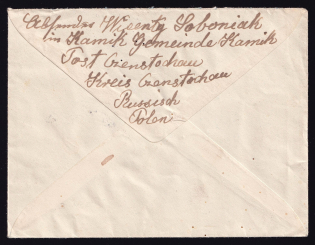 Weenty Soboniak
in Kamik Gemeinde Kamik
Post Czenstochau
Kreis Czenstochau
Russisch
Polen